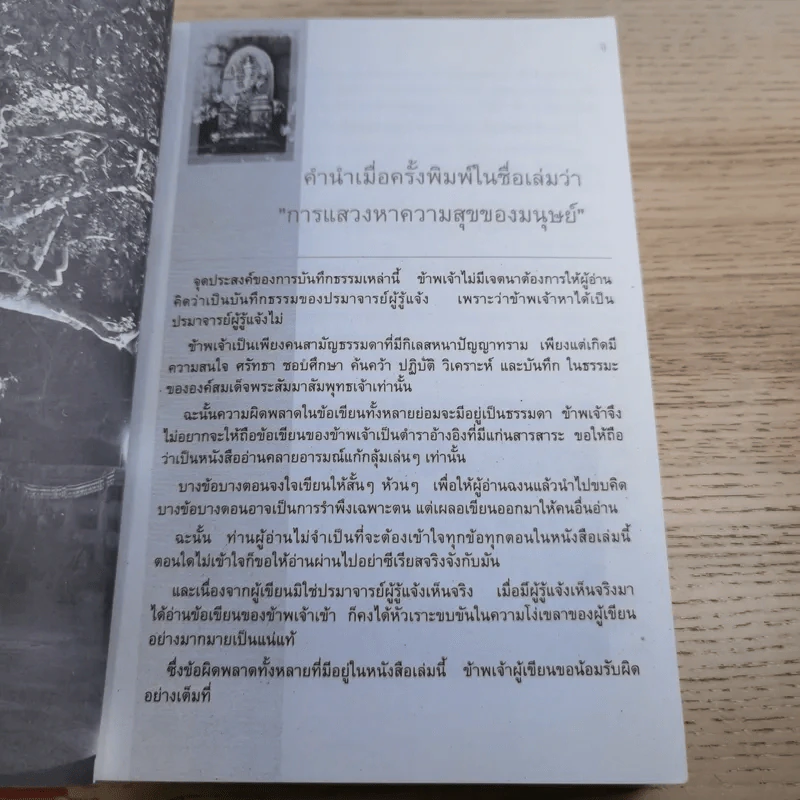 คำนำเมื่อครั้งพิมพ์ในชื่อเล่มว่า
"การแสวงหาความสุขของมนุษย์"
จุดประสงค์ของการบันทึกธรรมเหล่านี้ ข้าพเจ้าไม่มีเจตนาต้องการให้ผู้อ่าน
คิดว่าเป็นบันทึกธรรมของปรมาจารย์ผู้รู้แจ้ง เพราะว่าข้าพเจ้าหาได้เป็น
ปรมาจารย์ผู้รู้แจ้งไม่
ข้าพเจ้าเป็นเพียงคนสามัญธรรมดาที่มีกิเลสหนาปัญญาทราม เพียงแต่เกิดมี
ความสนใจ ศรัทธา ชอบศึกษา ค้นคว้า ปฏิบัติ วิเคราะห์ และบันทึก ในธรรมะ
ขององค์สมเด็จพระสัมมาสัมพุทธเจ้าเท่านั้น
ฉะนั้นความผิดพลาดในข้อเขียนทั้งหลายย่อมจะมีอยู่เป็นธรรมดา ข้าพเจ้าจึง
ไม่อยากจะให้ถือข้อเขียนของข้าพเจ้าเป็นตำราอ้างอิงที่มีแก่นสารสาระ ขอให้ถือ
ว่าเป็นหนังสืออ่านคลายอารมณ์แก้กลุ้มเล่นๆ เท่านั้น
บางข้อบางตอนจงใจเขียนให้สั้นๆ ห้วนๆ เพื่อให้ผู้อ่านฉงนแล้วนำไปขบคิด
บางข้อบางตอนอาจเป็นการรำพึงเฉพาะตน แต่เผลอเขียนออกมาให้คนอื่นอ่าน
ฉะนั้น ท่านผู้อ่านไม่จำเป็นที่จะต้องเข้าใจทุกข้อทุกตอนในหนังสือเล่มนี้
ตอนใดไม่เข้าใจก็ขอให้อ่านผ่านไปอย่าซีเรียสจริงจังกับมัน
และเนื่องจากผู้เขียนมิใช่ปรมาจารย์ผู้รู้แจ้งเห็นจริง เมื่อมีผู้รู้แจ้งเห็นจริงมา
ได้อ่านข้อเขียนของข้าพเจ้าเข้า ก็คงได้หัวเราะขบขันในความโง่เขลาของผู้เขียน
อย่างมากมายเป็นแน่แท้
ซึ่งข้อผิดพลาดทั้งหลายที่มีอยู่ในหนังสือเล่มนี้ ข้าพเจ้าผู้เขียนขอน้อมรับผิด
อย่างเต็มที่